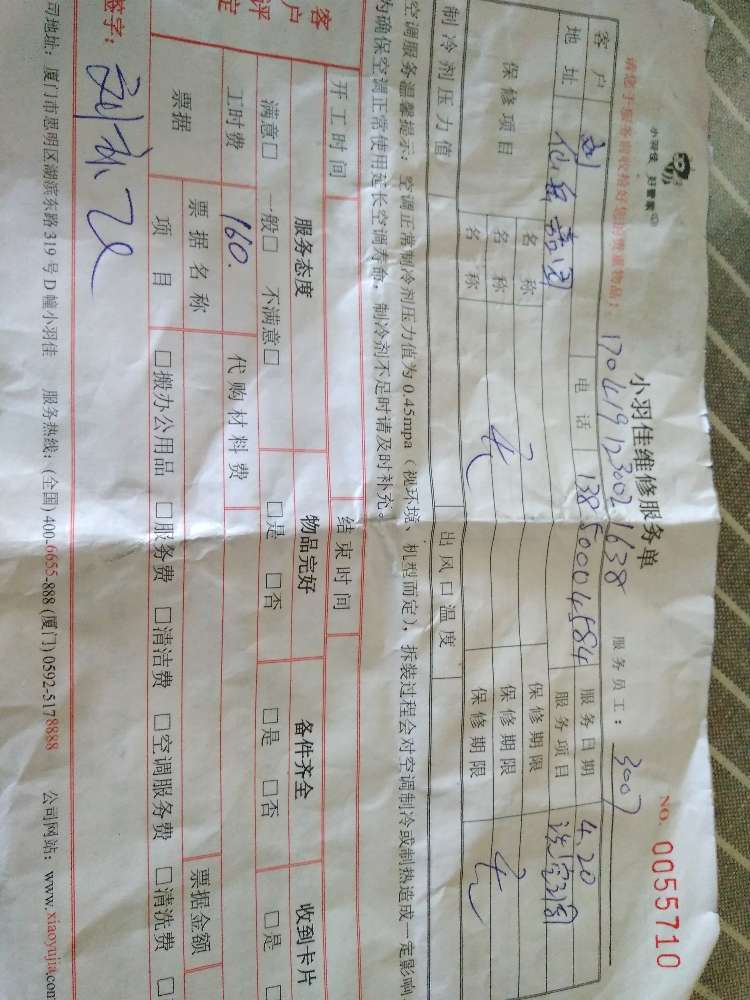 小羽佳 好管家
小羽佳维修服务单
NO. 0055710
请您于服务前收拾好您的贵重物品！
1704191230021638
服务员工： 3007
客户 刘 电话 13850004584 服务日期 4.20
地址 仙岳嘉园 服务项目 洗空调
保修项目 名称 保修期限
名称 无 保修期限 无
名称 保修期限
制冷剂压力值 出风口温度
空调服务温馨提示：空调正常制冷剂压力值为0.45mpa（视环境、机型而定），拆装过程会对空调制冷或制热造成一定影响
为确保空调正常使用延长空调寿命，制冷剂不足时请及时补充。
开工时间 结束时间
客户评定 服务态度 物品完好 备件齐全 收到卡片
满意□ 一般□ 不满意□ □是 □否 □是 □否 □是
工时费 160. 代购材料费
票据 票据名称 票据金额
项目 □搬办公用品 □服务费 □清洁费 □空调服务费 □清洗费 □
签字：
司地址：厦门市思明区湖滨东路319号D幢小羽佳 服务热线：(全国)400-6655-888 (厦门)0592-5178888 公司网站：www.xiaoyujia.com